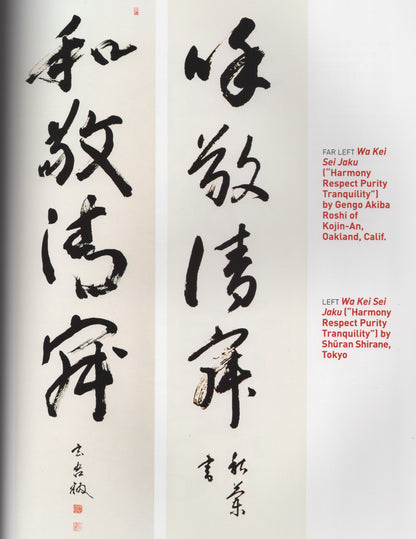 和敬清寂
玄吾
咊敬清寂
秋蘭
書
FAR LEFT Wa Kei
Sei Jaku
("Harmony
Respect Purity
Tranquility")
by Gengo Akiba
Roshi of
Kojin-An,
Oakland, Calif.
LEFT Wa Kei Sei
Jaku ("Harmony
Respect Purity
Tranquility") by
Shūran Shirane,
Tokyo